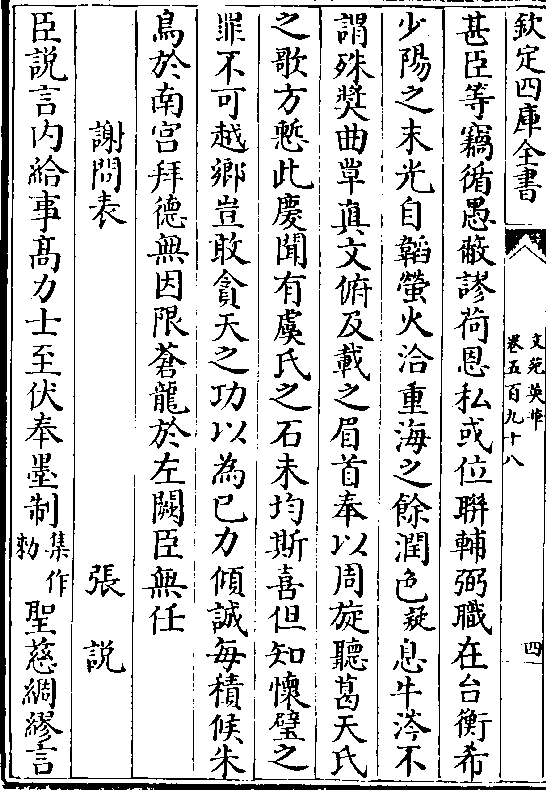 欽定四庫全書
文苑英華
卷五百九十八
四
甚臣等竊循愚蔽謬荷恩私或位聯輔弼職在台衡希
少陽之末光自韜螢火洽重海之餘潤色疑息牛涔不
謂殊奬曲覃真文俯及載之眉首奉以周旋聽葛天氏
之歌方慙此慶聞有虞氏之石未均斯喜但知懷璧之
罪不可越鄉豈敢貪天之功以為已力傾誠每積候朱
鳥於南宫拜德無因限蒼龍於左闕臣無任
謝問表 張説
臣説言内給事髙力士至伏奉墨制集作勅聖慈綢繆言